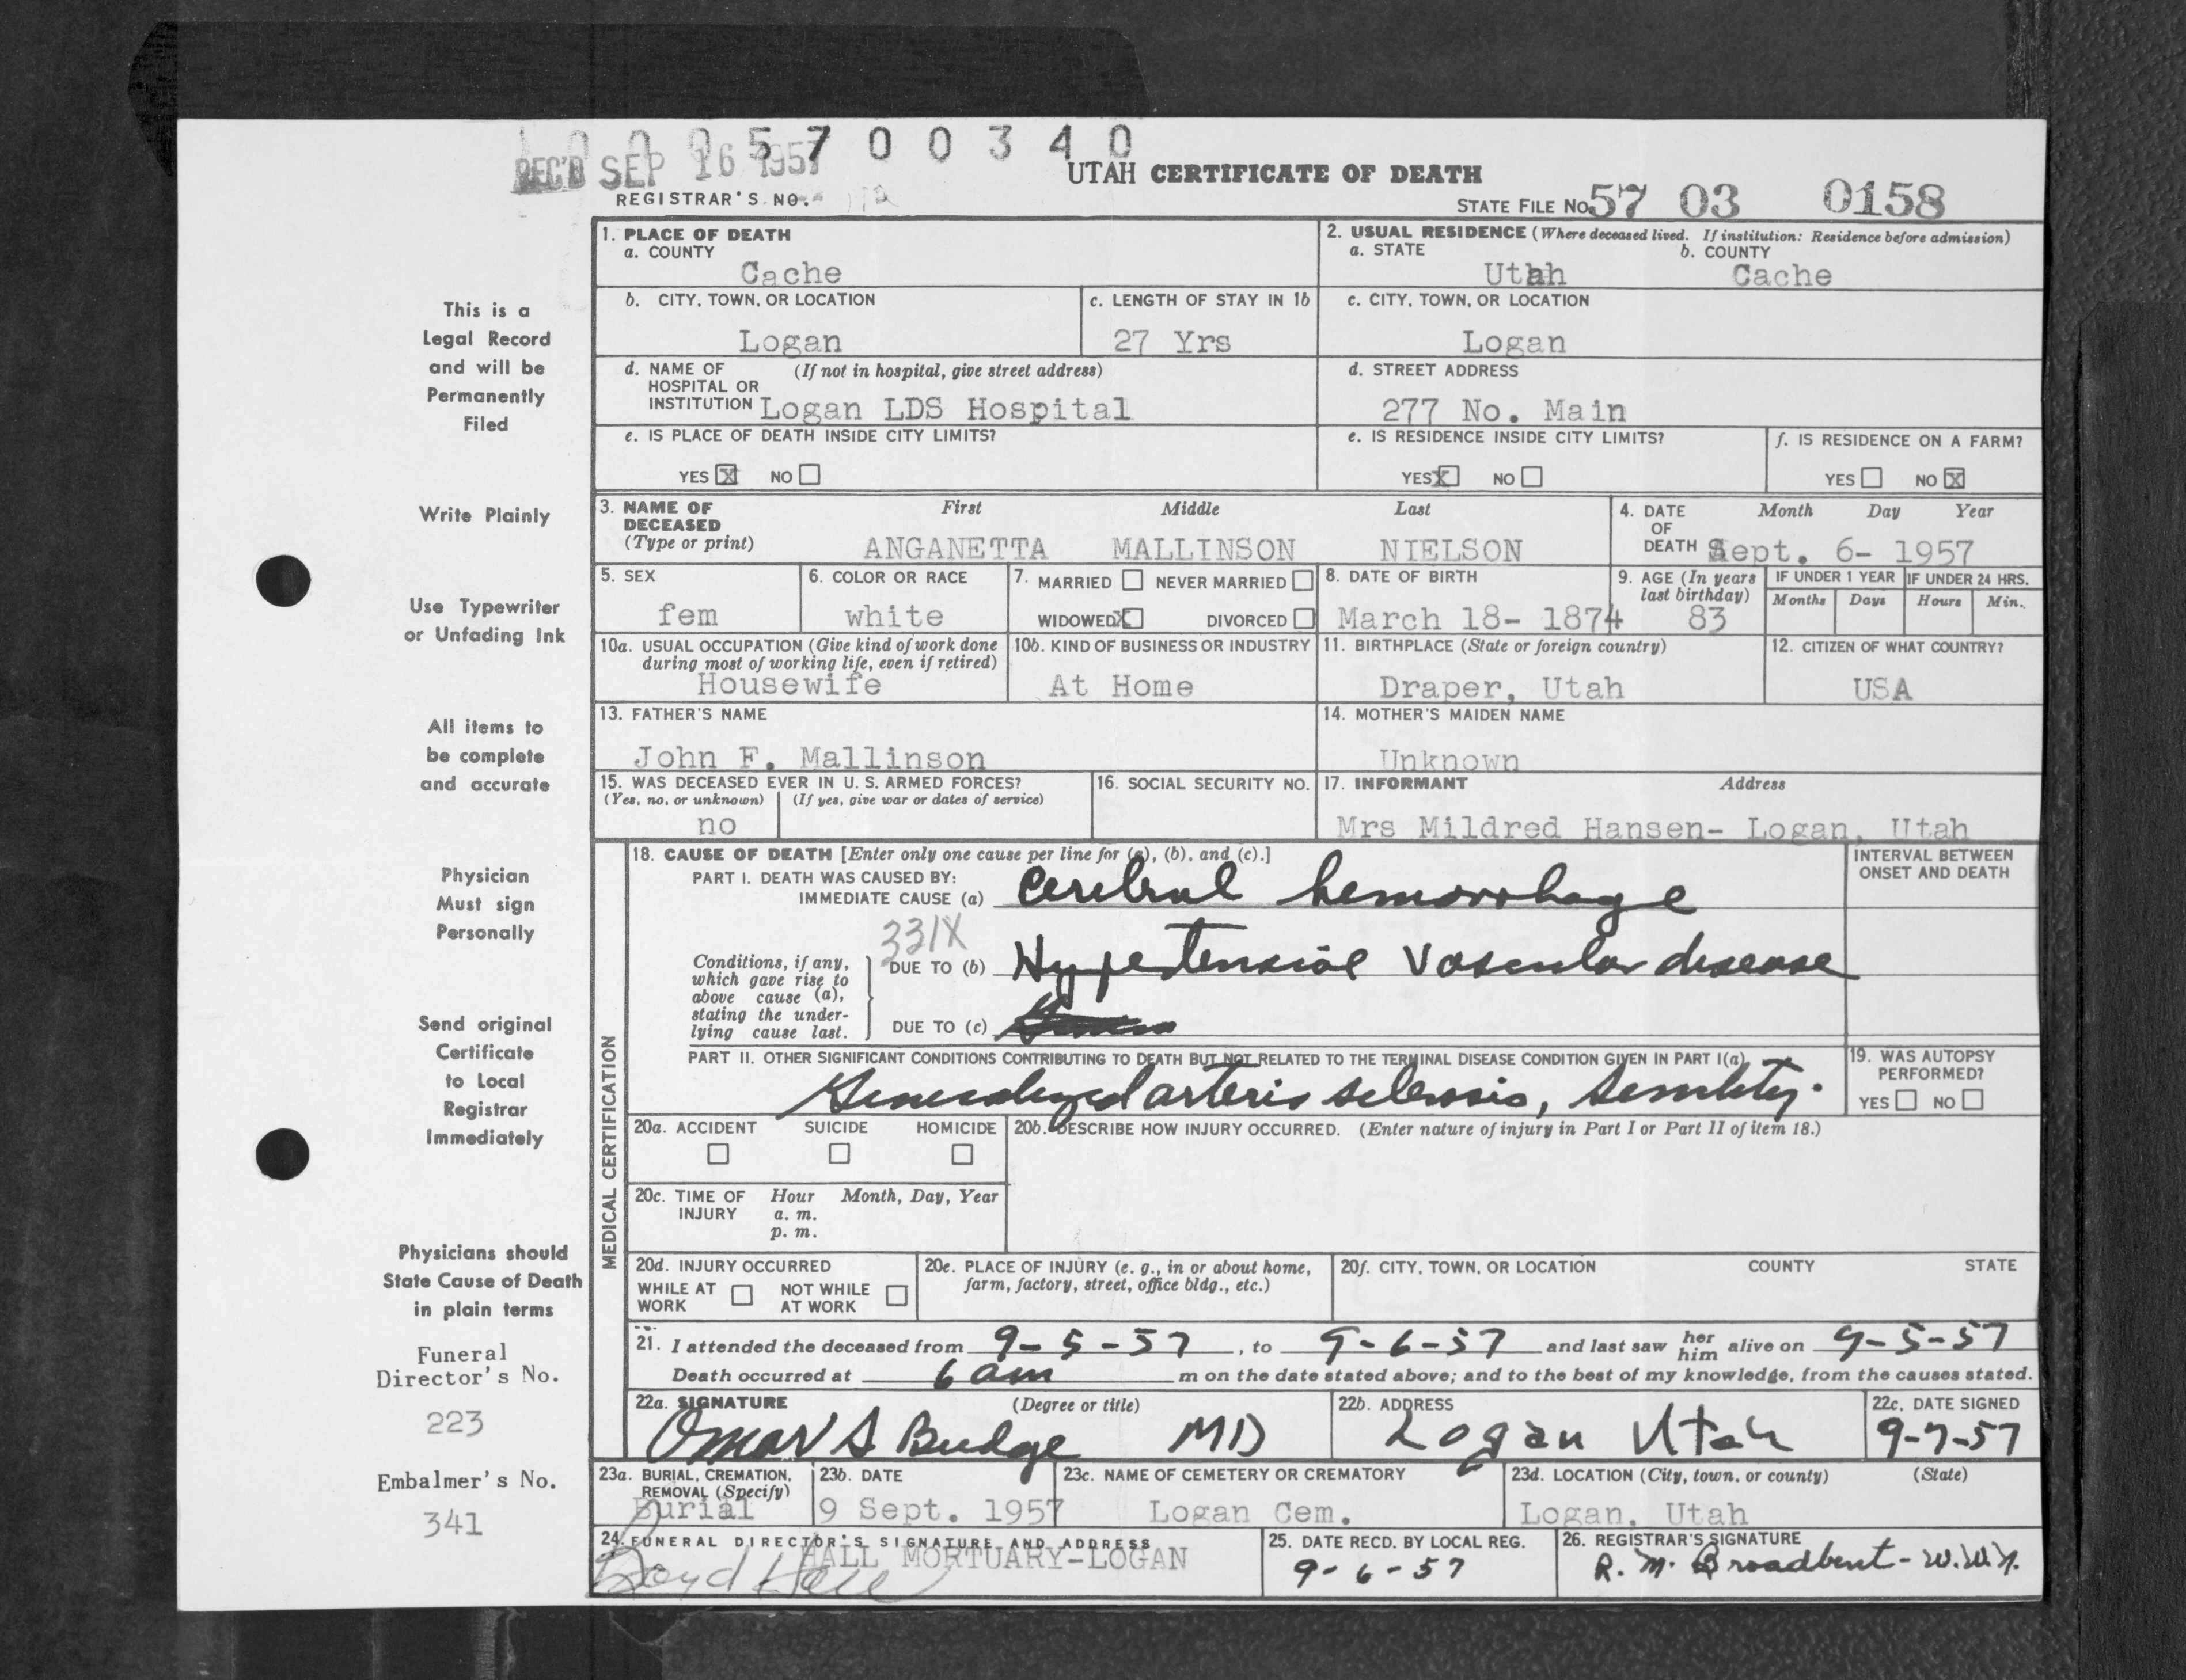 0 0 0 5 7 0 0 3 4 0
REC'D SEP 16 1957
UTAH CERTIFICATE OF DEATH
REGISTRAR'S NO.
STATE FILE NO. 57 03 0158
1. PLACE OF DEATH
a. COUNTY
Cache
2. USUAL RESIDENCE (Where deceased lived. If institution: Residence before admission)
a. STATE b. COUNTY
Utah Cache
b. CITY, TOWN, OR LOCATION
Logan
c. LENGTH OF STAY IN 1b
27 Yrs
c. CITY, TOWN, OR LOCATION
Logan
d. NAME OF (If not in hospital, give street address)
HOSPITAL OR
INSTITUTION Logan LDS Hospital
d. STREET ADDRESS
277 No. Main
e. IS PLACE OF DEATH INSIDE CITY LIMITS?
YES X NO
e. IS RESIDENCE INSIDE CITY LIMITS?
YES X NO
f. IS RESIDENCE ON A FARM?
YES NO X
3. NAME OF First Middle Last
DECEASED
(Type or print) ANGANETTA MALLINSON NIELSON
4. DATE Month Day Year
OF
DEATH Sept. 6- 1957
5. SEX
fem
6. COLOR OR RACE
white
7. MARRIED NEVER MARRIED
WIDOWED X DIVORCED
8. DATE OF BIRTH
March 18- 1874
9. AGE (In years
last birthday)
83
IF UNDER 1 YEAR IF UNDER 24 HRS.
Months Days Hours Min.
10a. USUAL OCCUPATION (Give kind of work done
during most of working life, even if retired)
Housewife
10b. KIND OF BUSINESS OR INDUSTRY
At Home
11. BIRTHPLACE (State or foreign country)
Draper, Utah
12. CITIZEN OF WHAT COUNTRY?
USA
13. FATHER'S NAME
John F. Mallinson
14. MOTHER'S MAIDEN NAME
Unknown
15. WAS DECEASED EVER IN U. S. ARMED FORCES?
(Yes, no, or unknown) (If yes, give war or dates of service)
no
16. SOCIAL SECURITY NO.
17. INFORMANT Address
Mrs Mildred Hansen- Logan, Utah
MEDICAL CERTIFICATION
18. CAUSE OF DEATH [Enter only one cause per line for (a), (b), and (c).]
PART I. DEATH WAS CAUSED BY:
IMMEDIATE CAUSE (a) Cerebral hemorrhage
INTERVAL BETWEEN
ONSET AND DEATH
331X
Conditions, if any,
which gave rise to
above cause (a),
stating the under-
lying cause last.
DUE TO (b) Hypertensive Vascular disease
DUE TO (c)
PART II. OTHER SIGNIFICANT CONDITIONS CONTRIBUTING TO DEATH BUT NOT RELATED TO THE TERMINAL DISEASE CONDITION GIVEN IN PART I(a)
Generalized arterio sclerosis, Senility.
19. WAS AUTOPSY
PERFORMED?
YES NO
20a. ACCIDENT SUICIDE HOMICIDE
20b. DESCRIBE HOW INJURY OCCURRED. (Enter nature of injury in Part I or Part II of item 18.)
20c. TIME OF Hour Month, Day, Year
INJURY a. m.
p. m.
20d. INJURY OCCURRED
WHILE AT NOT WHILE
WORK AT WORK
20e. PLACE OF INJURY (e. g., in or about home,
farm, factory, street, office bldg., etc.)
20f. CITY, TOWN, OR LOCATION COUNTY STATE
21. I attended the deceased from 9-5-57, to 9-6-57 and last saw her him alive on 9-5-57
Death occurred at 6 am m on the date stated above; and to the best of my knowledge, from the causes stated.
22a. SIGNATURE (Degree or title)
Omar S Budge MD
22b. ADDRESS
Logan Utah
22c. DATE SIGNED
9-7-57
23a. BURIAL, CREMATION,
REMOVAL (Specify)
Burial
23b. DATE
9 Sept. 1957
23c. NAME OF CEMETERY OR CREMATORY
Logan Cem.
23d. LOCATION (City, town, or county) (State)
Logan, Utah
24. FUNERAL DIRECTOR'S SIGNATURE AND ADDRESS
HALL MORTUARY-LOGAN
Boyd Hall
25. DATE RECD. BY LOCAL REG.
9-6-57
26. REGISTRAR'S SIGNATURE
R. M. Broadbent - W.W.N.
This is a
Legal Record
and will be
Permanently
Filed
Write Plainly
Use Typewriter
or Unfading Ink
All items to
be complete
and accurate
Physician
Must sign
Personally
Send original
Certificate
to Local
Registrar
Immediately
Physicians should
State Cause of Death
in plain terms
Funeral
Director's No.
223
Embalmer's No.
341